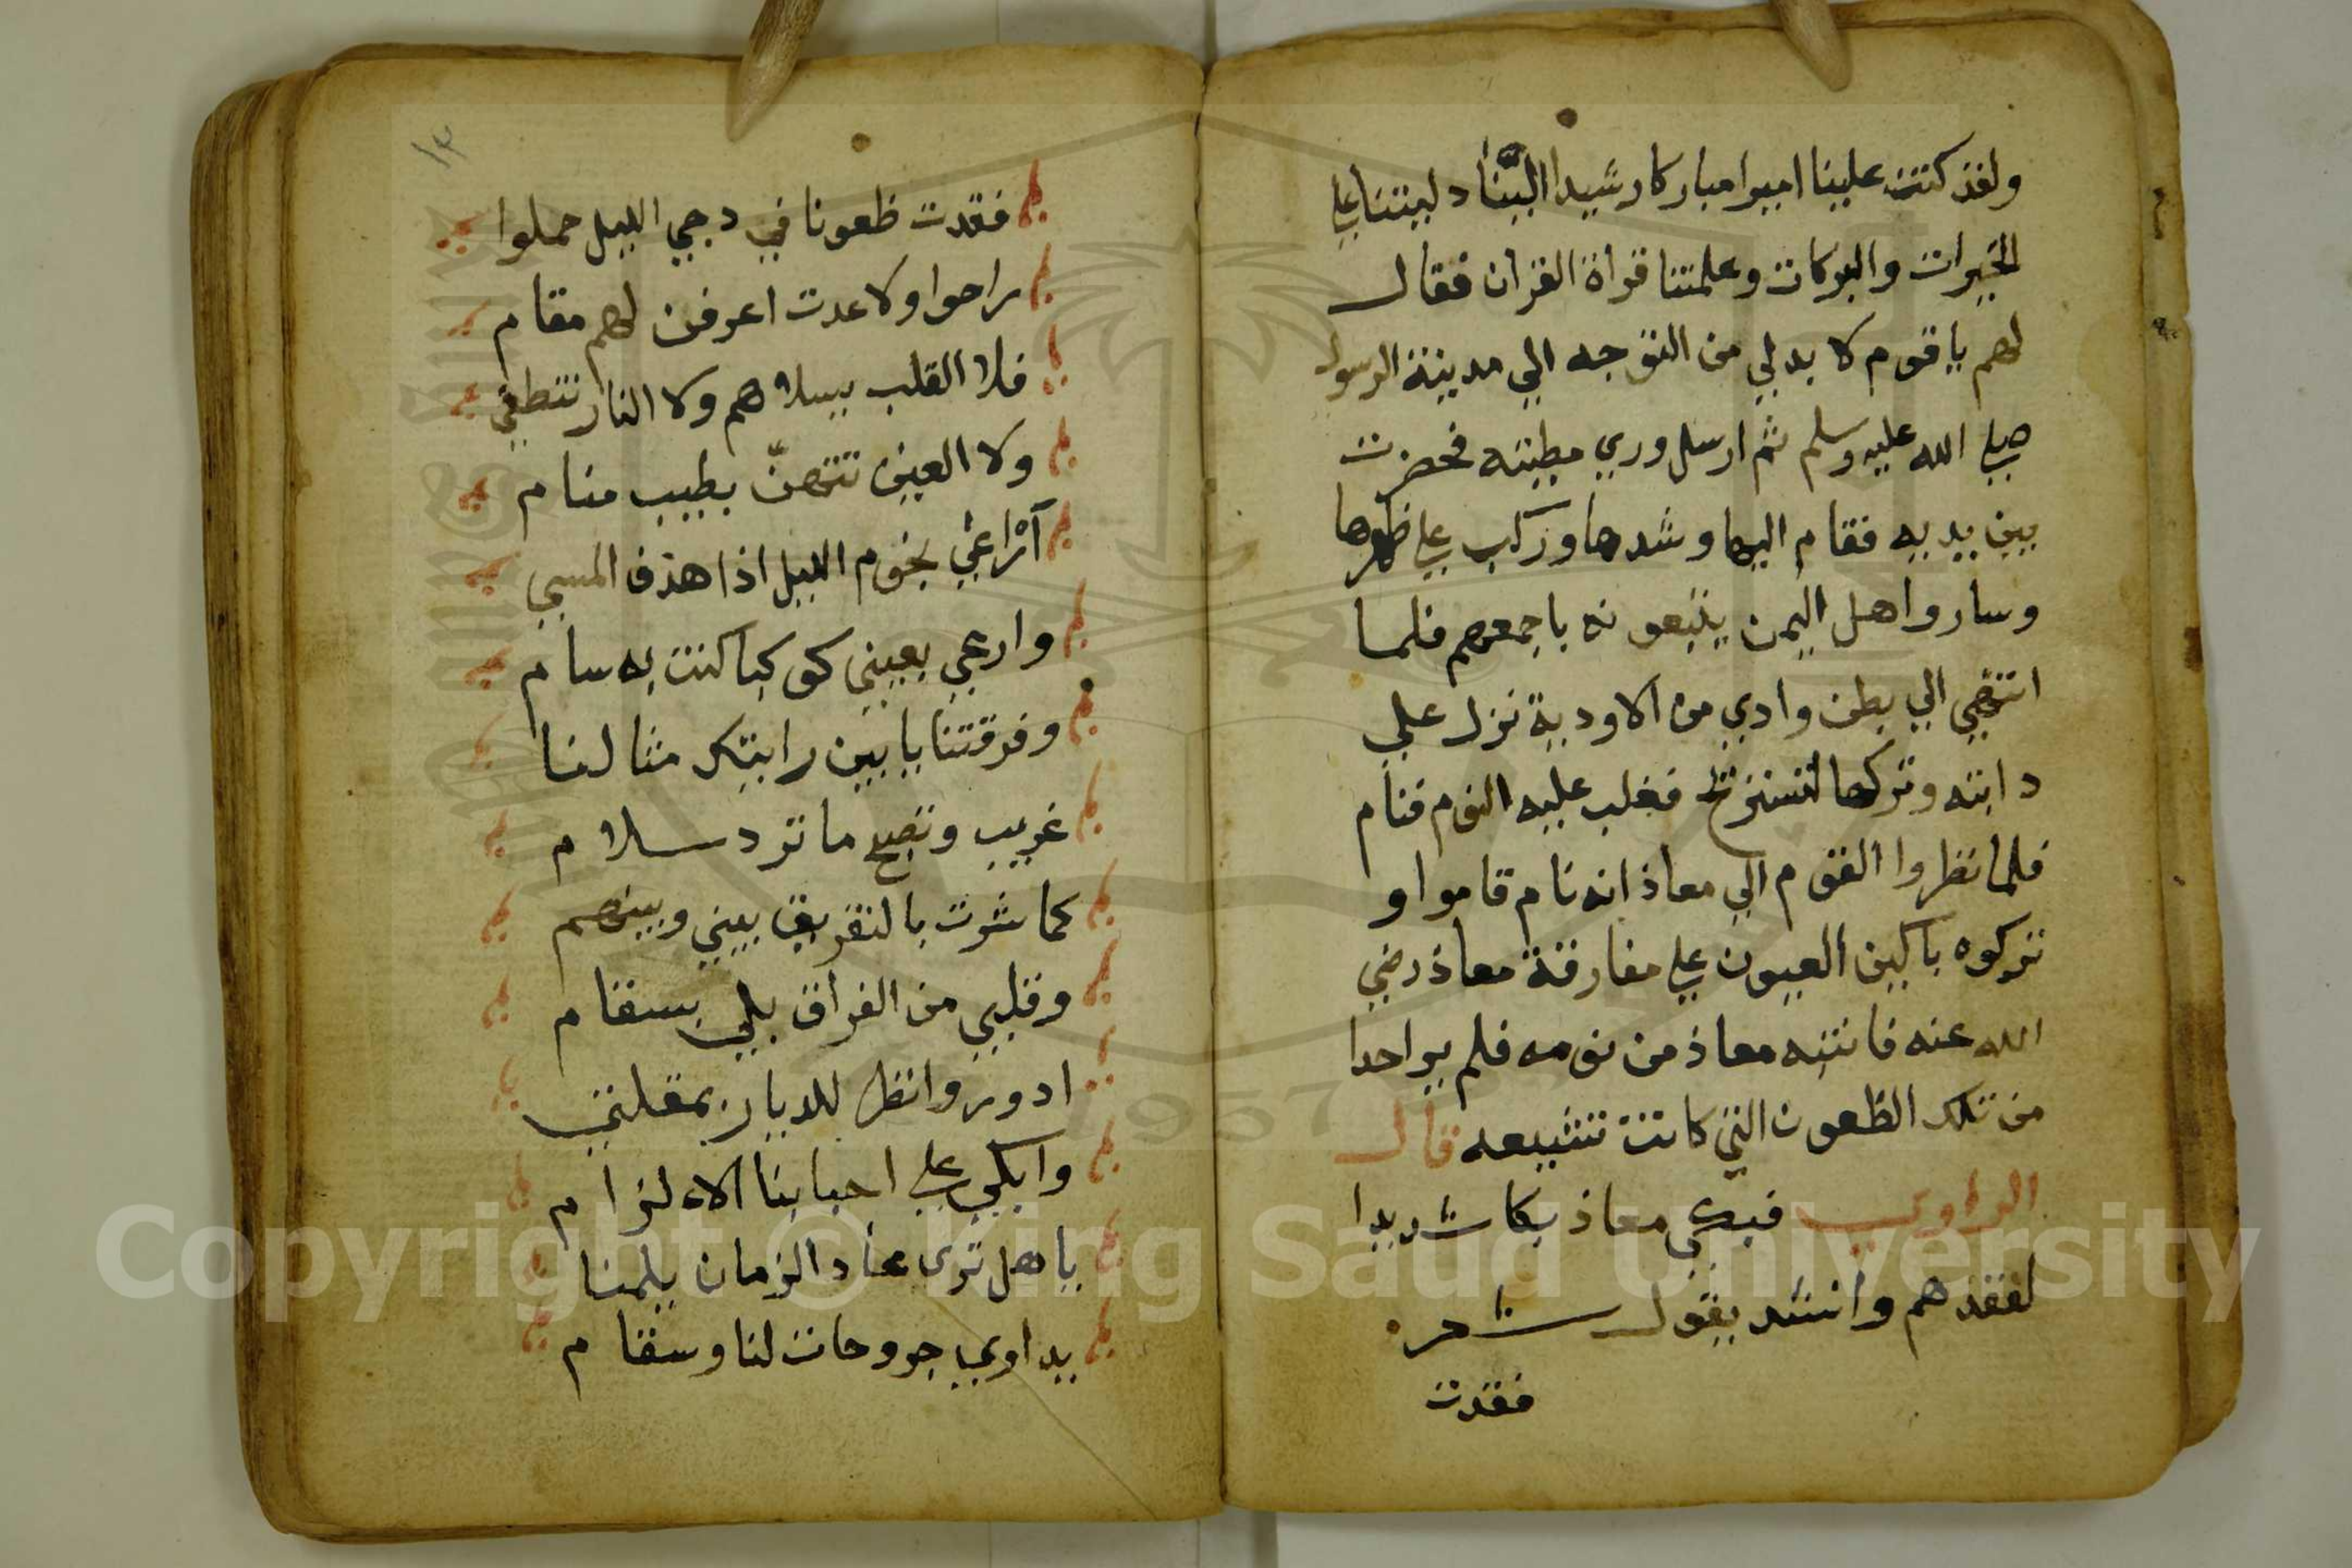 ولقد كنت علينا اميرا مباركا رشيدا الينا دليتنا علي
الخيرات والبركات وعلمتنا قراة القران فقال
لهم ياقوم لا بدلي من التوجه الي مدينة الرسول
صلي الله عليه وسلم ثم ارسل وري مطيته فحضرت
بين يديه فقام اليها وشدها وركب علي ظهرها
وساروا اهل اليمن يتبعونه باجمعهم فلما
انتهي الي بطن وادي من الاودية نزل علي
دابته وتركها لتستريح فغلب عليه النوم فنام
فلما نظروا القوم الي معاذ انه نام قاموا و
تركوه باكين العيون علي مفارقة معاذ رضي
الله عنه فانتبه معاذ من نومه فلم ير احدا
من تلك الظعون التي كانت تشيعه قال
الراوي فبكي معاذ بكا شديدا
لفقدهم وانشد يقول شعر
فقدت
١٣
فقدت ظعونا في دجي الليل حملوا
راحوا ولا عدت اعرفن لهم مقام
فلا القلب يسلاهم ولا النار تنطفي
ولا العين تتهنّ بطيب منام
اراعي نجوم الليل اذا هذف المسي
وارعي بعيني كوكبا كنت به سام
وفرقتنا يا بين رايتك مثالنا
غريب وتصبح ما ترد سلام
كما شوت بالتفريق بيني وبينهم
وقلبي من الفراق بلي بسقام
ادور وانظر للديار بمقلتي
وابكي علي احبابنا الا لزام
يا هل تري عاد الزمان يلمنا
يداوي جروحات لنا وسقام
Copyright © King Saud University
1957